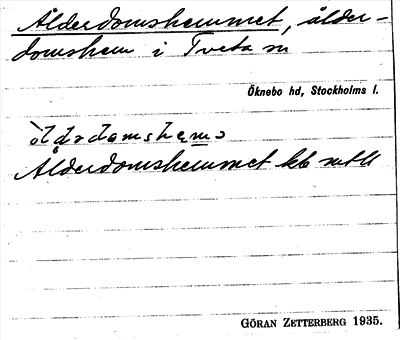 Ålderdomshemmet, ålder-
domshem i Tveta sn
Öknebo hd, Stockholms l.
Ålderdomshemmet
GÖRAN ZETTERBERG 1935.